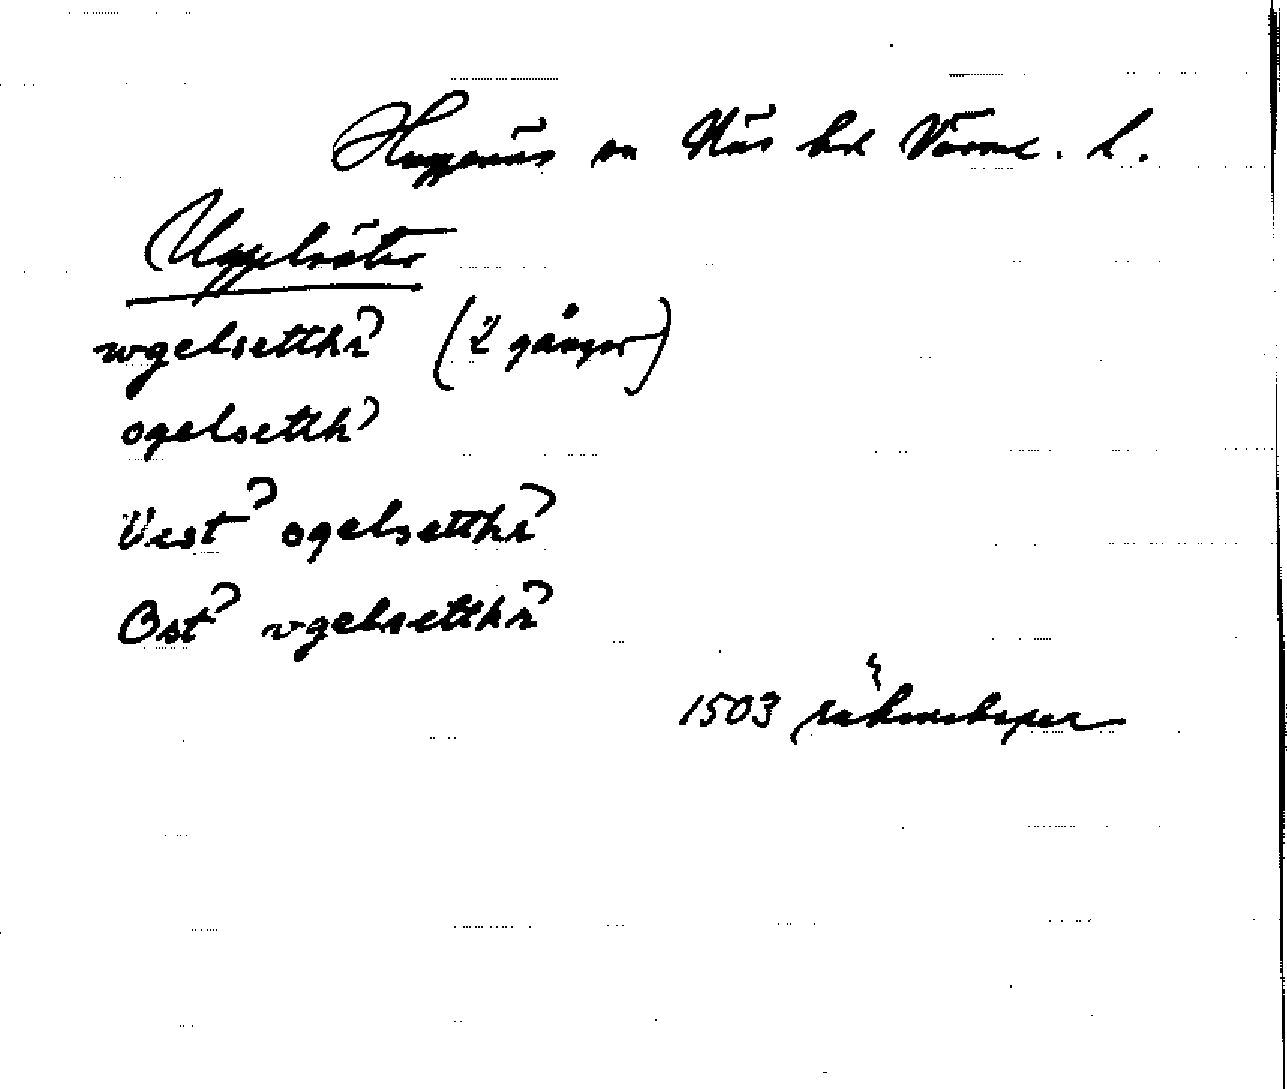 Huggenäs sn Näs hd Värml. l.
Upplsäter
wgelsetthr (2 gånger)
ogelsetth
Vest ogelsetthr
Ost vgelsetthr
1503 räkenskaper